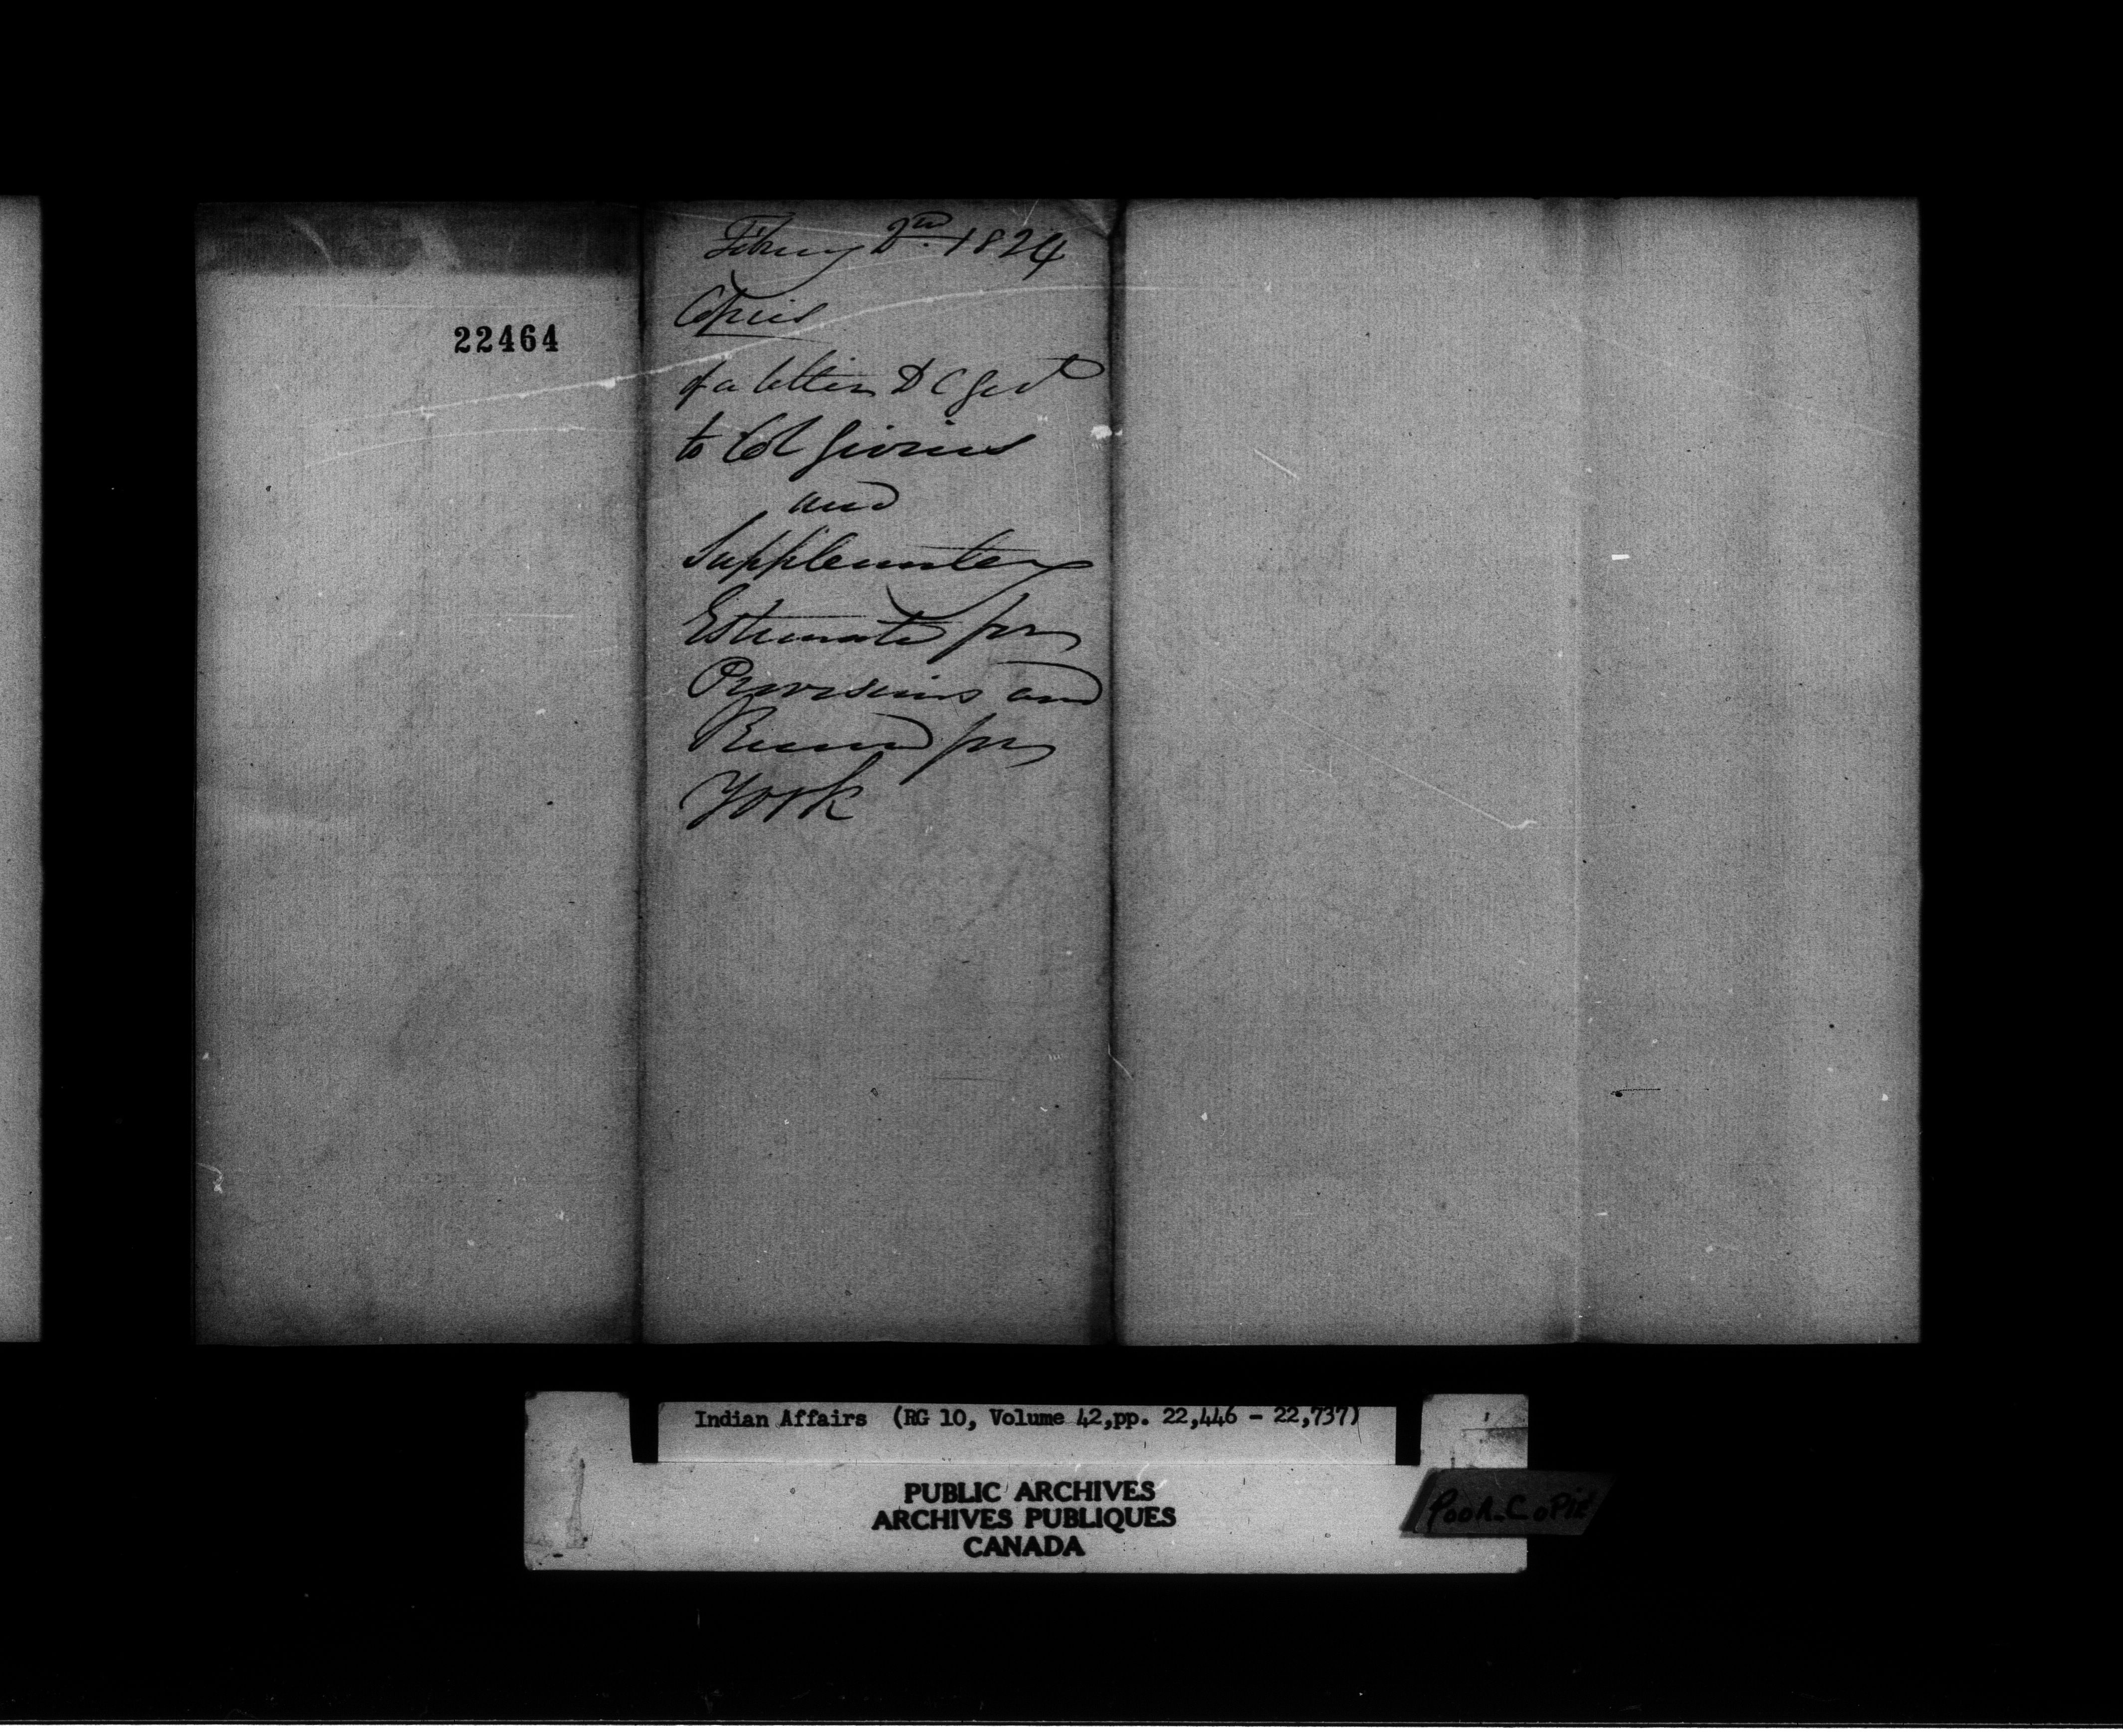 22464
Febuary 2nd 1824
Copies
of a letter D C Genl
to Col Givins
and
Supplementary
Estimate for
Provisions and
Rum for
York
Indian Affairs (RG 10, Volume 42,pp. 22,446 - 22,737)
PUBLIC ARCHIVES
ARCHIVES PUBLIQUES
CANADA
Poor_Copie